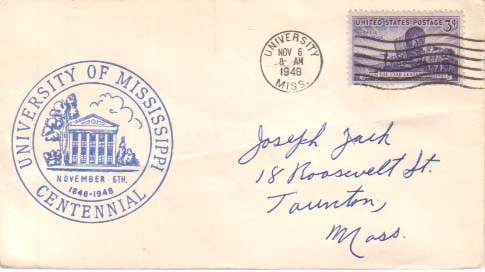 UNITED STATES POSTAGE 3¢
UNIVERSITY
NOV 6
8- AM
1948
MISS.
UNIVERSITY OF MISSISSIPPI
NOVEMBER 6TH.
1848-1948
CENTENNIAL
Joseph Jach
18 Roosevelt St.
Taunton,
Mass.